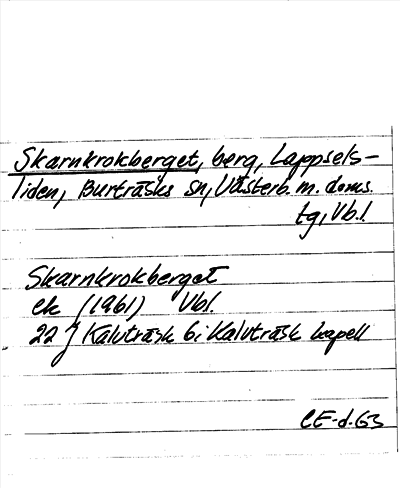 Skarnkrokberget, berg, Lappsels-
liden, Burträsks sn, Västerb. m. doms.
tg, Vb.l.
Skarnkrokberget
ek (1961) Vbl.
22 J Kalvträsk 6i Kalvträsk kapell
CE-d. 63